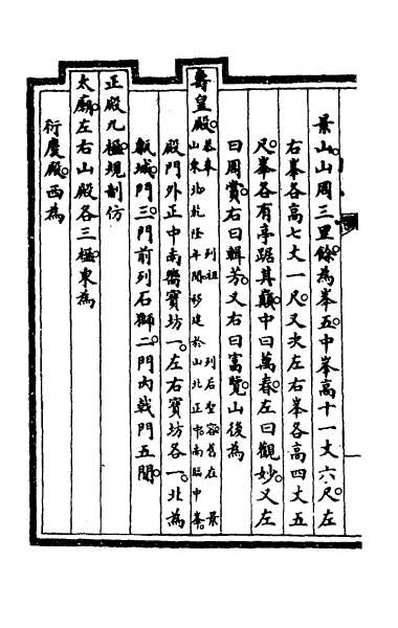 景山山周三里餘為峯五中峯高十一丈六尺左
右峯各高七丈一尺又次左右峯各高四丈五
尺峯各有亭踞其巔中曰萬春左曰觀妙又左
曰周賞右曰輯芳又右曰富覽山後為
壽皇殿恭奉 列祖 列后聖容舊在 景
山東北乾隆年間移建於山北正中南臨中峯
殿門外正中南嚮寶坊一左右寶坊各一北為
甎城門三門前列石獅二門內戟門五間
正殿九楹規制仿
太廟左右山殿各三楹東為
衍慶殿西為